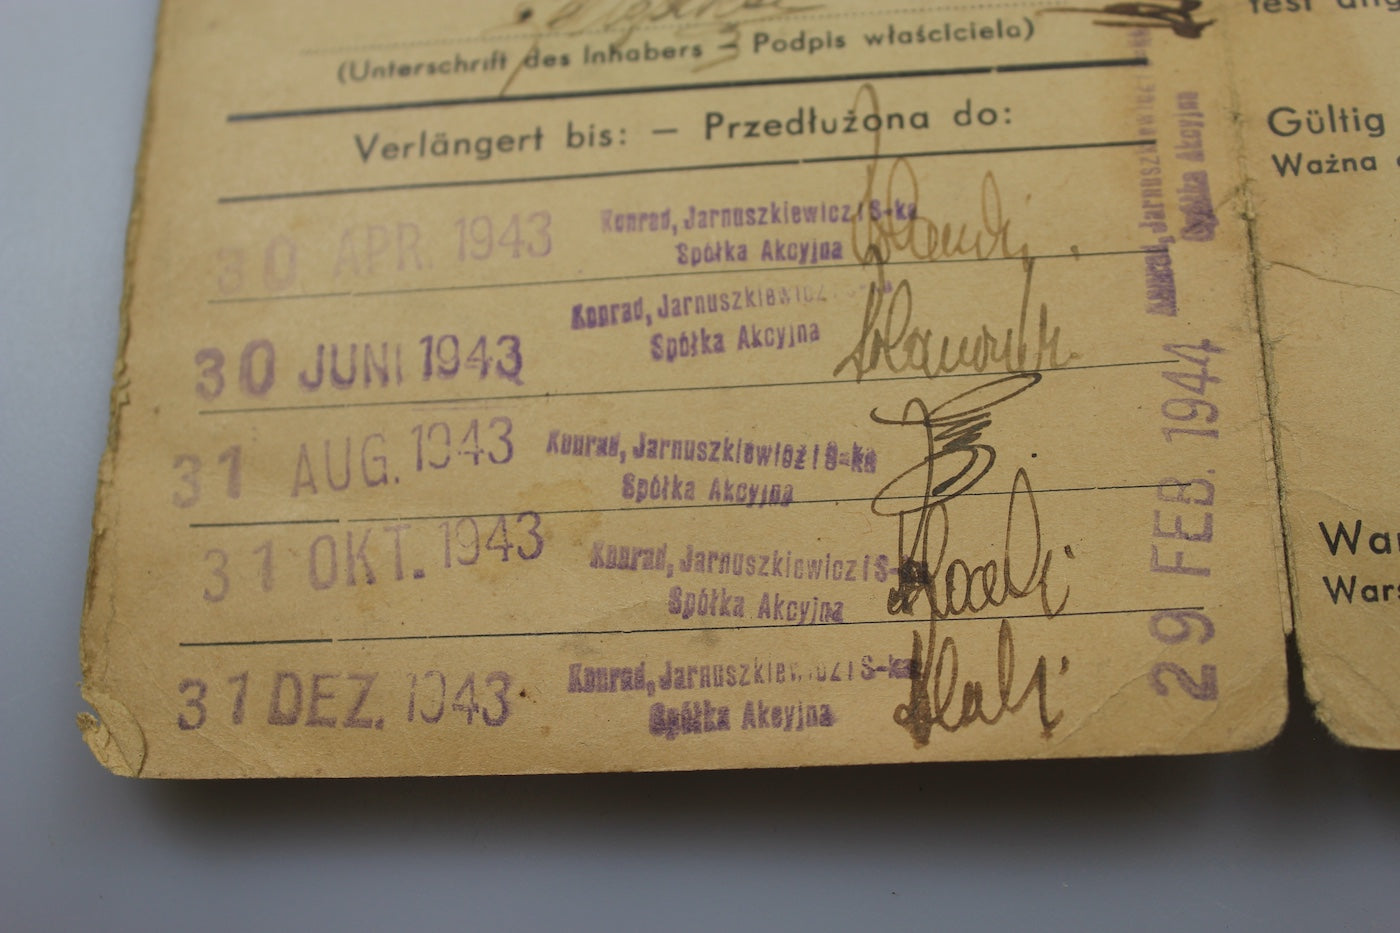 (Unterschrift des Inhabers — Podpis właściciela)
Verlängert bis: — Przedłużona do:
30 APR. 1943 Konrad, Jarnuszkiewicz i S-ka
Spółka Akcyjna
30 JUNI 1943 Konrad, Jarnuszkiewicz i S-ka
Spółka Akcyjna
31 AUG. 1943 Konrad, Jarnuszkiewicz i S-ka
Spółka Akcyjna
31 OKT. 1943 Konrad, Jarnuszkiewicz i S-ka
Spółka Akcyjna
31 DEZ. 1943 Konrad, Jarnuszkiewicz i S-ka
Spółka Akcyjna
29 FEB. 1944 Konrad, Jarnuszkiewicz
Spółka Akcyjna
fest
Gültig
Ważna